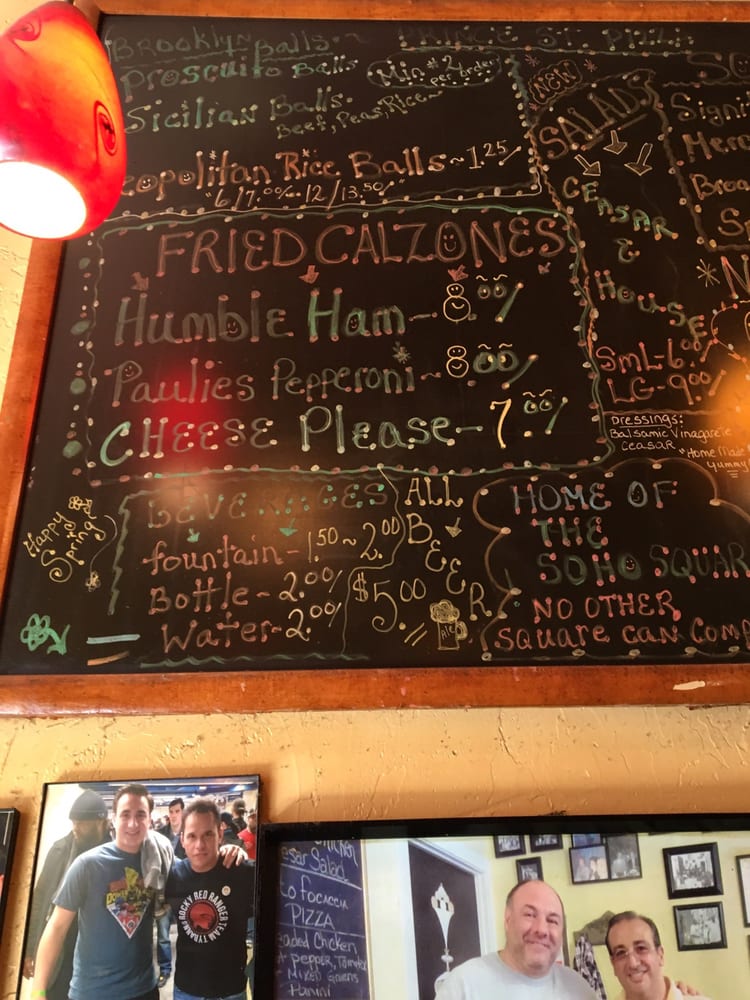 Brooklyn Balls~
PRINCE ST. PIZZ
Proscuito Balls
Min #2
per order
Sicilian Balls~
Beef, Peas, Rice~
eopolitan Rice Balls~1.25/
"6/7.00~12/13.50/"
NEW
SALADS
CEASAR
&
HOUSE
SmL-6.00/
LG-9.00/
Dressings:
Balsamic Vinagarete
Ceasar "Home Made
yummy
Signi
Merc
Broo
Sp
FRIED CALZONES
Humble Ham~8.00/
Paulies Pepperoni~8.00/
CHEESE Please~7.00/
Happy
Spring
BEVERAGES
fountain-1.50~2.00
Bottle-2.00/
Water-2.00/
ALL
BEER
$5.00
ALE
HOME OF
THE
SOHO SQUAR
NO OTHER
SQUARE CAN COMP
ROCKY RED RANGER TEAM TYRANNO
Chicken
esar Salad
Focaccia
PIZZA
eaded Chicken
pepper, Tomato
Mixed greens
Panini